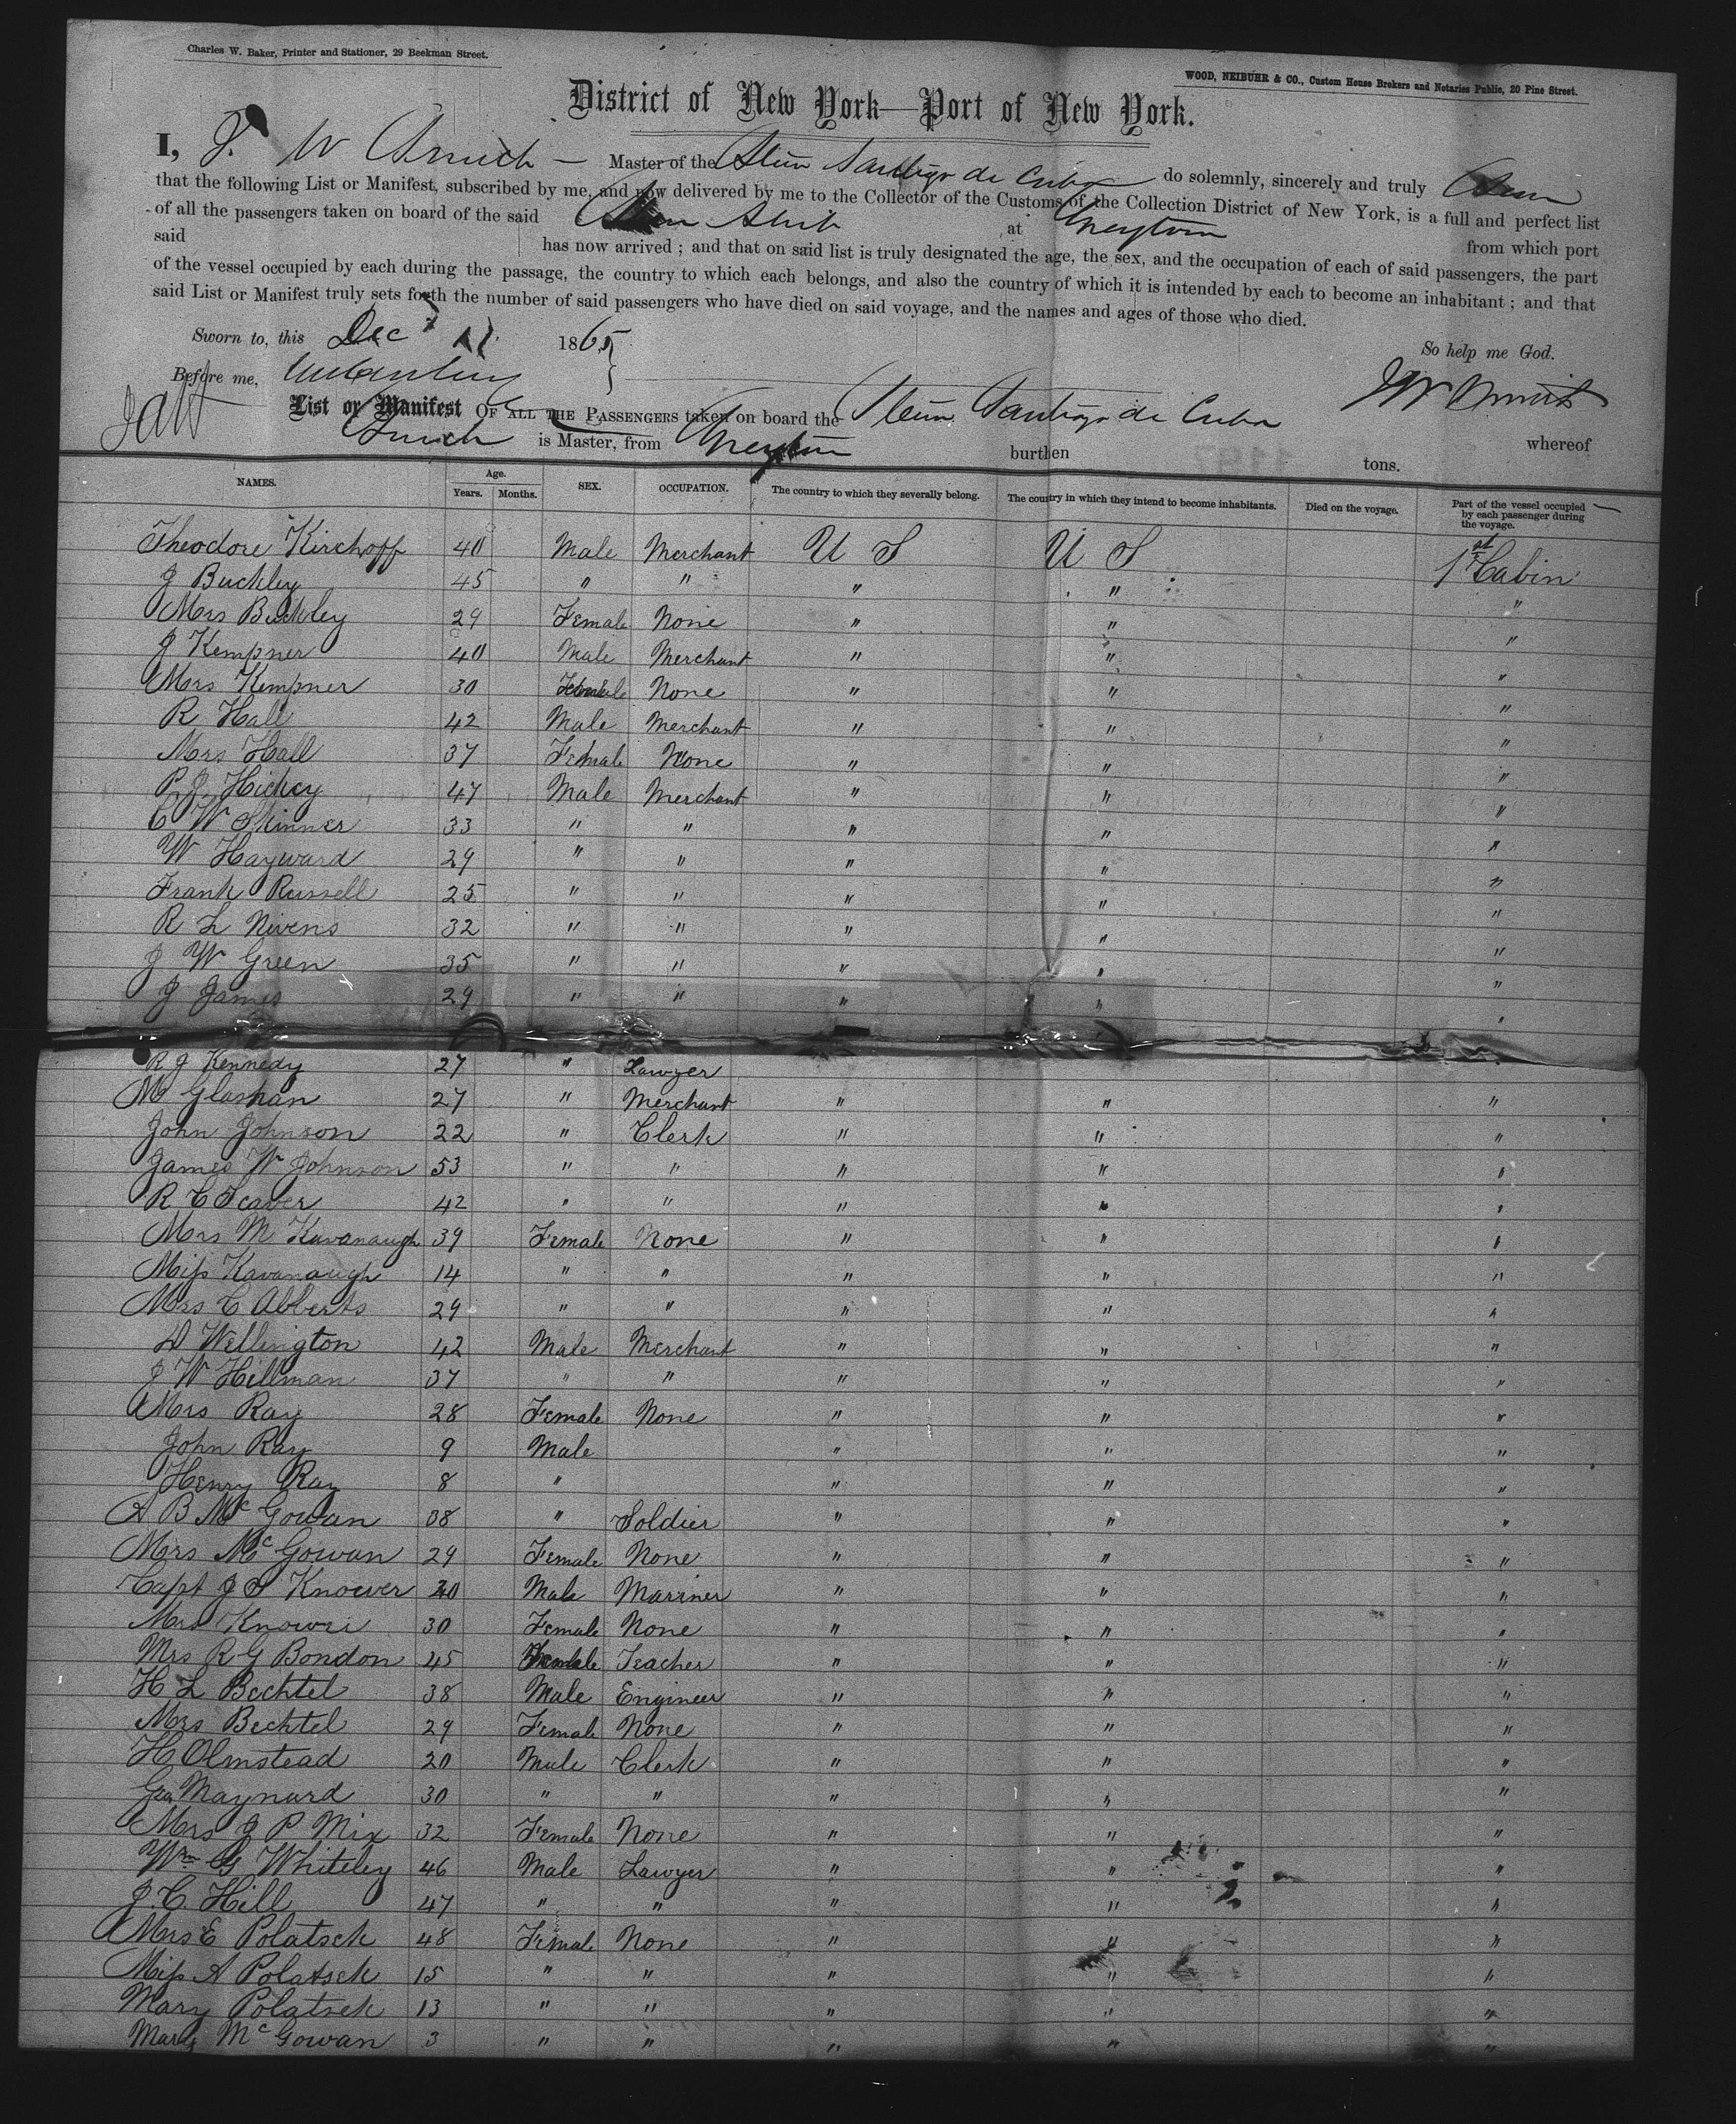 Charles W. Baker, Printer and Stationer, 29 Beekman Street.
WOOD, NEIBUHR & CO., Custom House Brokers and Notaries Public, 20 Pine Street.
District of New York—Port of New York.
I, J. W Master of the Steam Santiago de Cuba do solemnly, sincerely and truly
that the following List or Manifest, subscribed by me, and now delivered by me to the Collector of the Customs of the Collection District of New York, is a full and perfect list
of all the passengers taken on board of the said at Greytown from which port
said has now arrived ; and that on said list is truly designated the age, the sex, and the occupation of each of said passengers, the part
of the vessel occupied by each during the passage, the country to which each belongs, and also the country of which it is intended by each to become an inhabitant ; and that
said List or Manifest truly sets forth the number of said passengers who have died on said voyage, and the names and ages of those who died.
Sworn to, this Dec 1865 So help me God.
Before me,
List or Manifest OF ALL THE PASSENGERS taken on board the Steam Santiago de Cuba whereof
is Master, from Greytown burthen tons.
NAMES. Age. Years. Months. SEX. OCCUPATION. The country to which they severally belong. The country in which they intend to become inhabitants. Died on the voyage. Part of the vessel occupied by each passenger during the voyage.
Theodore Kirchoff 40 Male Merchant U S U S 1st Cabin
J Buckley 45 " " " " "
Mrs Buckley 29 Female None " " "
J Kempner 40 Male Merchant " " "
Mrs Kempner 30 Female None " " "
R Hall 42 Male Merchant " " "
Mrs Hall 37 Female None " " "
P J Hickey 47 Male Merchant " " "
C W Skinner 33 " " " " "
W Hayward 29 " " " " "
Frank Russell 25 " " " " "
R L Nivens 32 " " " " "
J W Green 35 " " " " "
J James 29 " " " " "
R J Kennedy 27 " Lawyer
M Glasman 27 " Merchant " " "
John Johnson 22 " Clerk " " "
James W Johnson 53 " " " " "
R C Seaver 42 " " " " "
Mrs M Kavanaugh 39 Female None " " "
Miss Kavanaugh 14 " " " " "
Mrs C Abberts 29 " " " " "
D Wellington 42 Male Merchant " " "
J W Hillman 37 " " " " "
Mrs Ray 28 Female None " " "
John Ray 9 Male " " "
Henry Ray 8 " " " "
A B McGowan 38 " Soldier " " "
Mrs McGowan 29 Female None " " "
Capt J S Knower 30 Male Mariner " " "
Mrs Knower 30 Female None " " "
Mrs R G Bondon 45 Female Teacher " " "
H L Bechtel 38 Male Engineer " " "
Mrs Bechtel 29 Female None " " "
H Olmstead 20 Male Clerk " " "
Geo Maynard 30 " " " " "
Mrs J P Mix 32 Female None " " "
Wm G Whiteley 46 Male Lawyer " " "
J. C. Hill 47 " " " " "
Mrs E Polatsek 48 Female None " " "
Miss A Polatsek 15 " " " " "
Mary Polatsek 13 " " " " "
Mary McGowan 3 " " " " "